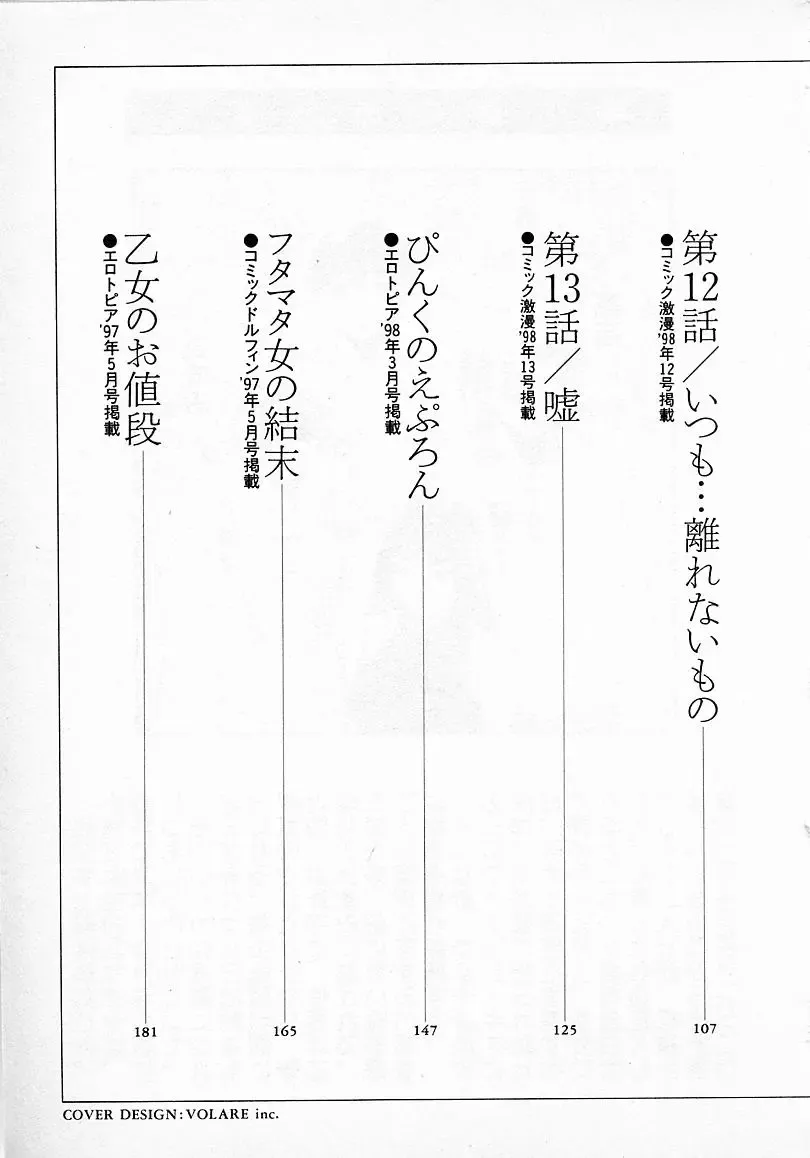 第12話／いつも…離れないもの
●コミック激漫'98年12号掲載
107
第13話／嘘
●コミック激漫'98年13号掲載
125
ぴんくのえぷろん
●エロトピア'98年3月号掲載
147
フタマタ女の結末
●コミックドルフィン'97年5月号掲載
165
乙女のお値段
●エロトピア'97年5月号掲載
181
COVER DESIGN:VOLARE inc.